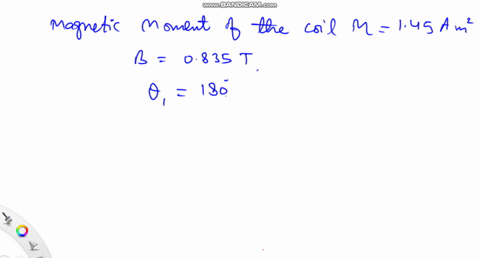 www.BANDICAM.com
Magnetic Moment of the coil M = 1.45 A m²
B = 0.835 T.
θ₁ = 180°